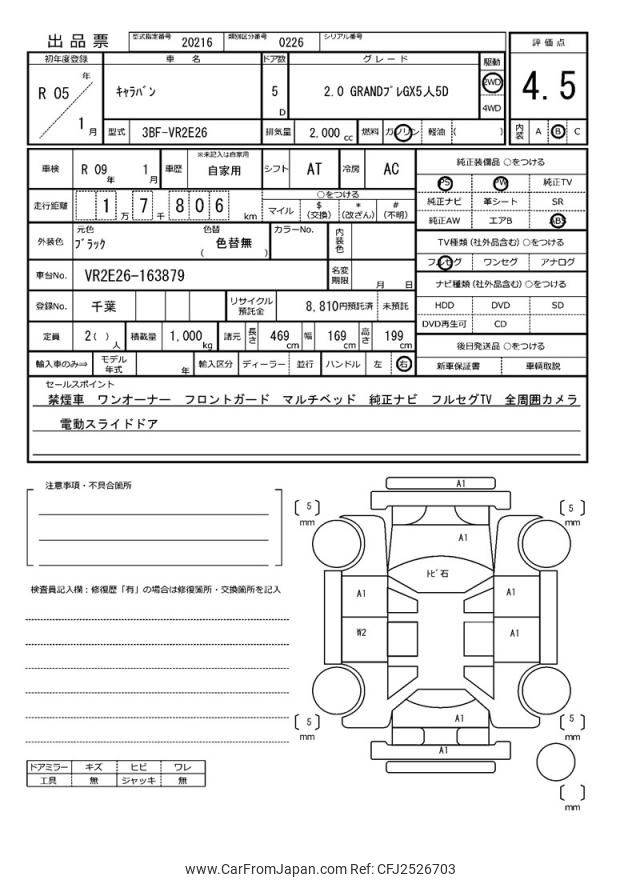 出品票 型式指定番号 20216 類別区分番号 0226 シリアル番号
初年度登録 車名 ドア数 グレード 駆動 評価点
R 05 年 1 月 キャラバン 5 D 2.0 GRANDプレGX5人5D 2WD 4WD 4.5
型式 3BF-VR2E26 排気量 2,000 cc 燃料 ガソリン 軽油 ( ) 内装 A B C
車検 R 09 年 1 月 車歴 ※未記入は自家用 自家用 シフト AT 冷房 AC
走行距離 1 万 7 千 8 0 6 km ○をつける マイル $ (交換) * (改ざん) # (不明)
外装色 元色 ブラック 色替 色替無 ( ) カラーNo. 内装色
車台No. VR2E26-163879 名変期限 月 日
登録No. 千葉 リサイクル預託金 8,810円預託済 未預託
定員 2( ) 人 積載量 1,000 kg 諸元 長さ 469 cm 幅 169 cm 高さ 199 cm
輸入車のみ⇒ モデル年式 年 輸入区分 ディーラー 並行 ハンドル 左 右
純正装備品 ○をつける
PS PW 純正TV
純正ナビ 革シート SR
純正AW エアB ABS
TV種類 (社外品含む) ○をつける
フルセグ ワンセグ アナログ
ナビ種類 (社外品含む) ○をつける
HDD DVD SD
DVD再生可 CD
後日発送品 ○をつける
新車保証書 車輌取説
セールスポイント
禁煙車 ワンオーナー フロントガード マルチベッド 純正ナビ フルセグTV 全周囲カメラ
電動スライドドア
注意事項・不具合箇所
検査員記入欄：修復歴「有」の場合は修復箇所・交換箇所を記入
ドアミラー キズ ヒビ ワレ
工具 無 ジャッキ 無
A1
[ 5 ] mm [ 5 ] mm
A1
トビ石
A1 A1
W2 A1
A1
[ 5 ] mm [ 5 ] mm
A1
[ ] mm
www.CarFromJapan.com Ref: CFJ2526703